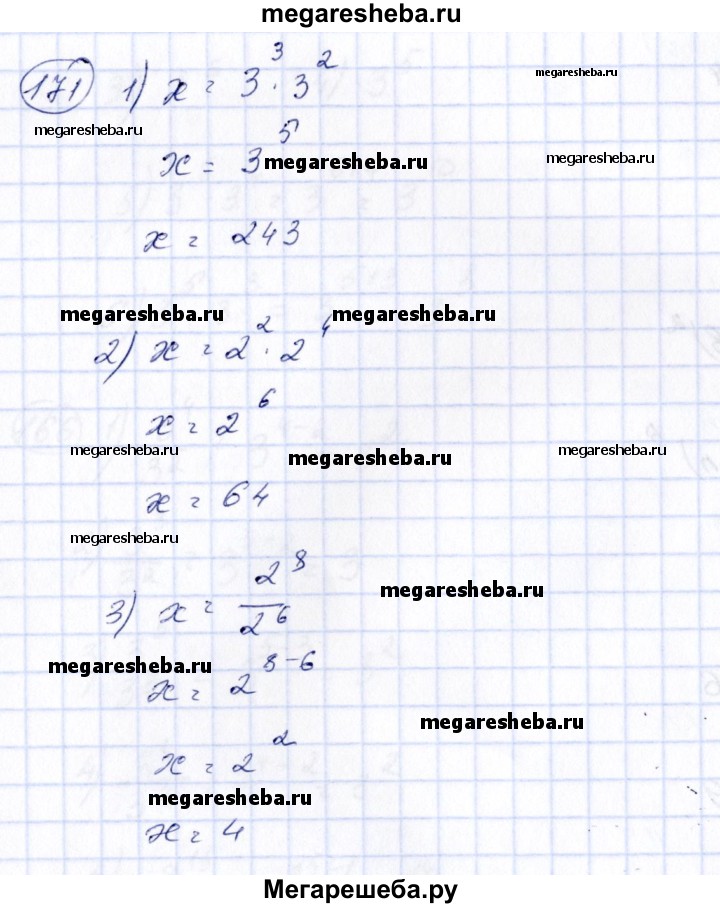 megaresheba.ru
171 1) x = 3³ · 3²
megaresheba.ru
megaresheba.ru
x = 3⁵
megaresheba.ru
megaresheba.ru
x = 243
megaresheba.ru
megaresheba.ru
2) x = 2² · 2⁴
x = 2⁶
megaresheba.ru
megaresheba.ru
megaresheba.ru
x = 64
megaresheba.ru
3) x = 2⁸/2⁶
megaresheba.ru
megaresheba.ru
x = 2⁸⁻⁶
megaresheba.ru
x = 2²
megaresheba.ru
x = 4
Мегарешеба.ру